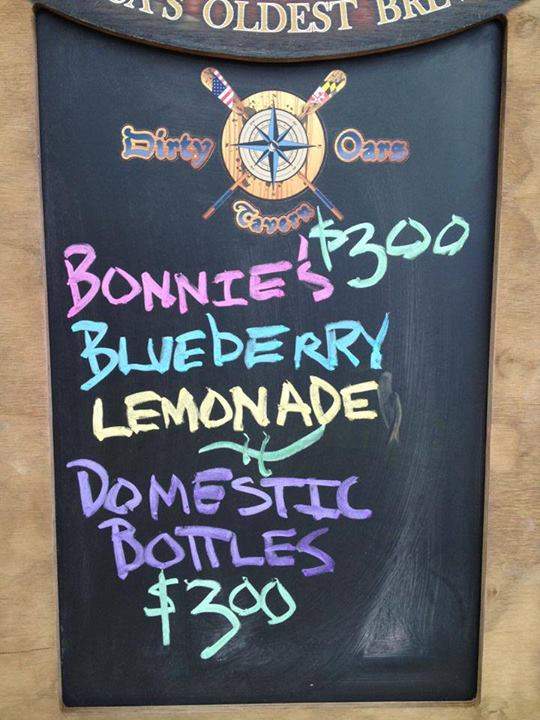 OLDEST
Dirty Oars
Tavern
BONNIE'S $300
BLUEBERRY
LEMONADE
DOMESTIC
BOTTLES
$300